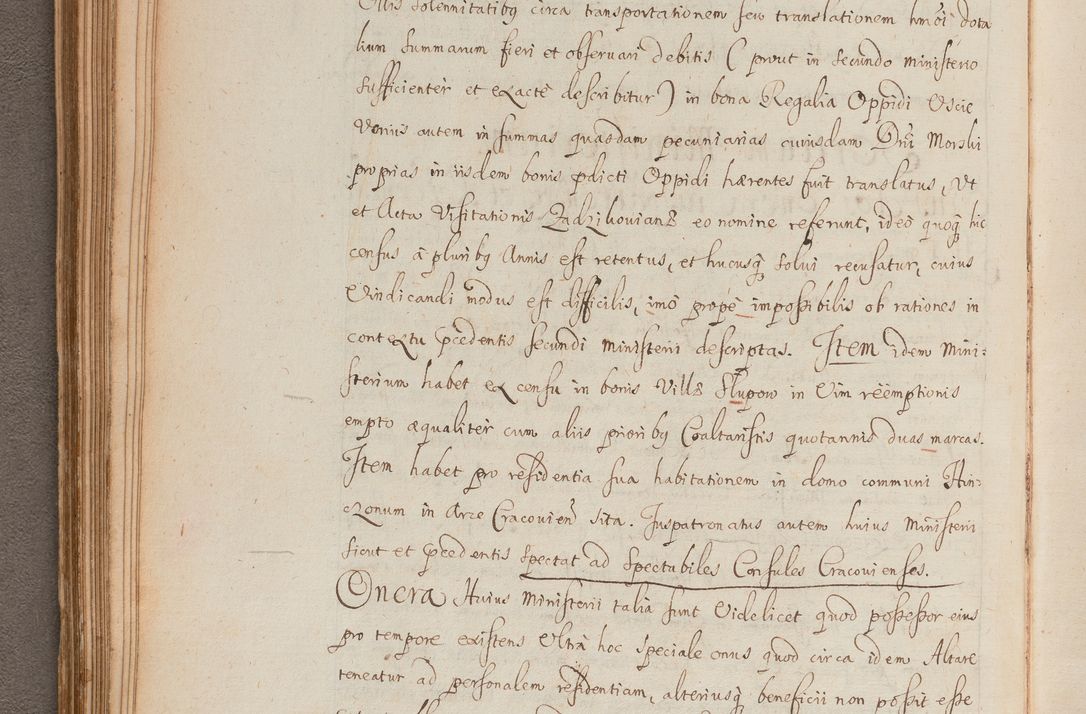 Illis solennitatibq circa transportationem seu translationem hmõi dota
lium summarum fieri et observari debitis ( prout in secundo ministerio
sufficienter et exacte describitur ) in bona Regalia Oppidi Uscie
Venius autem in summas quasdam pecuniarias cuiusdam Dni Morski
proprias in iisdem bonis pdicti Oppidi hærentes fuit translatus, Ut
et Acta Visitationis Zadzikovianæ eo nomine referunt, ideò quoqꝫ hic
census â pluribq Annis est retentus, et hucusqꝫ solvi recusatur, cuius
Vindicandi modus est difficilis, imò propè impossibilis ob rationes in
contextu pcedentis secundi ministerii descriptas. Item idem Mini:
sterium habet ex censu in bonis Villæ Slupow in Vim reëmptionis
empto æqualiter cum aliis prioribq Coaltaristis quotannis duas marcas.
Item habet pro residentia sua habitationem in domo communi Hin:
czonum in Arce Cracovien sita. Juspatronatus autem huius Ministerii
sicut et pcedentis spectat ad Spectabiles Consules Cracovienses.
Onera Huius Ministerii talia sunt Videlicet quod possessor eius
pro tempore existens Ultra hoc speciale onus quod circa idem Altare
teneatur ad personalem residentiam, alteriusqꝫ beneficii non possit esse